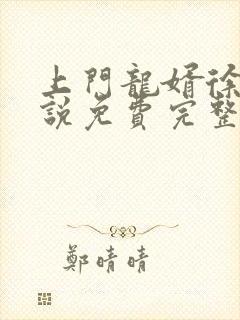 上門龍婿徐
說免費完整
鄭晴晴